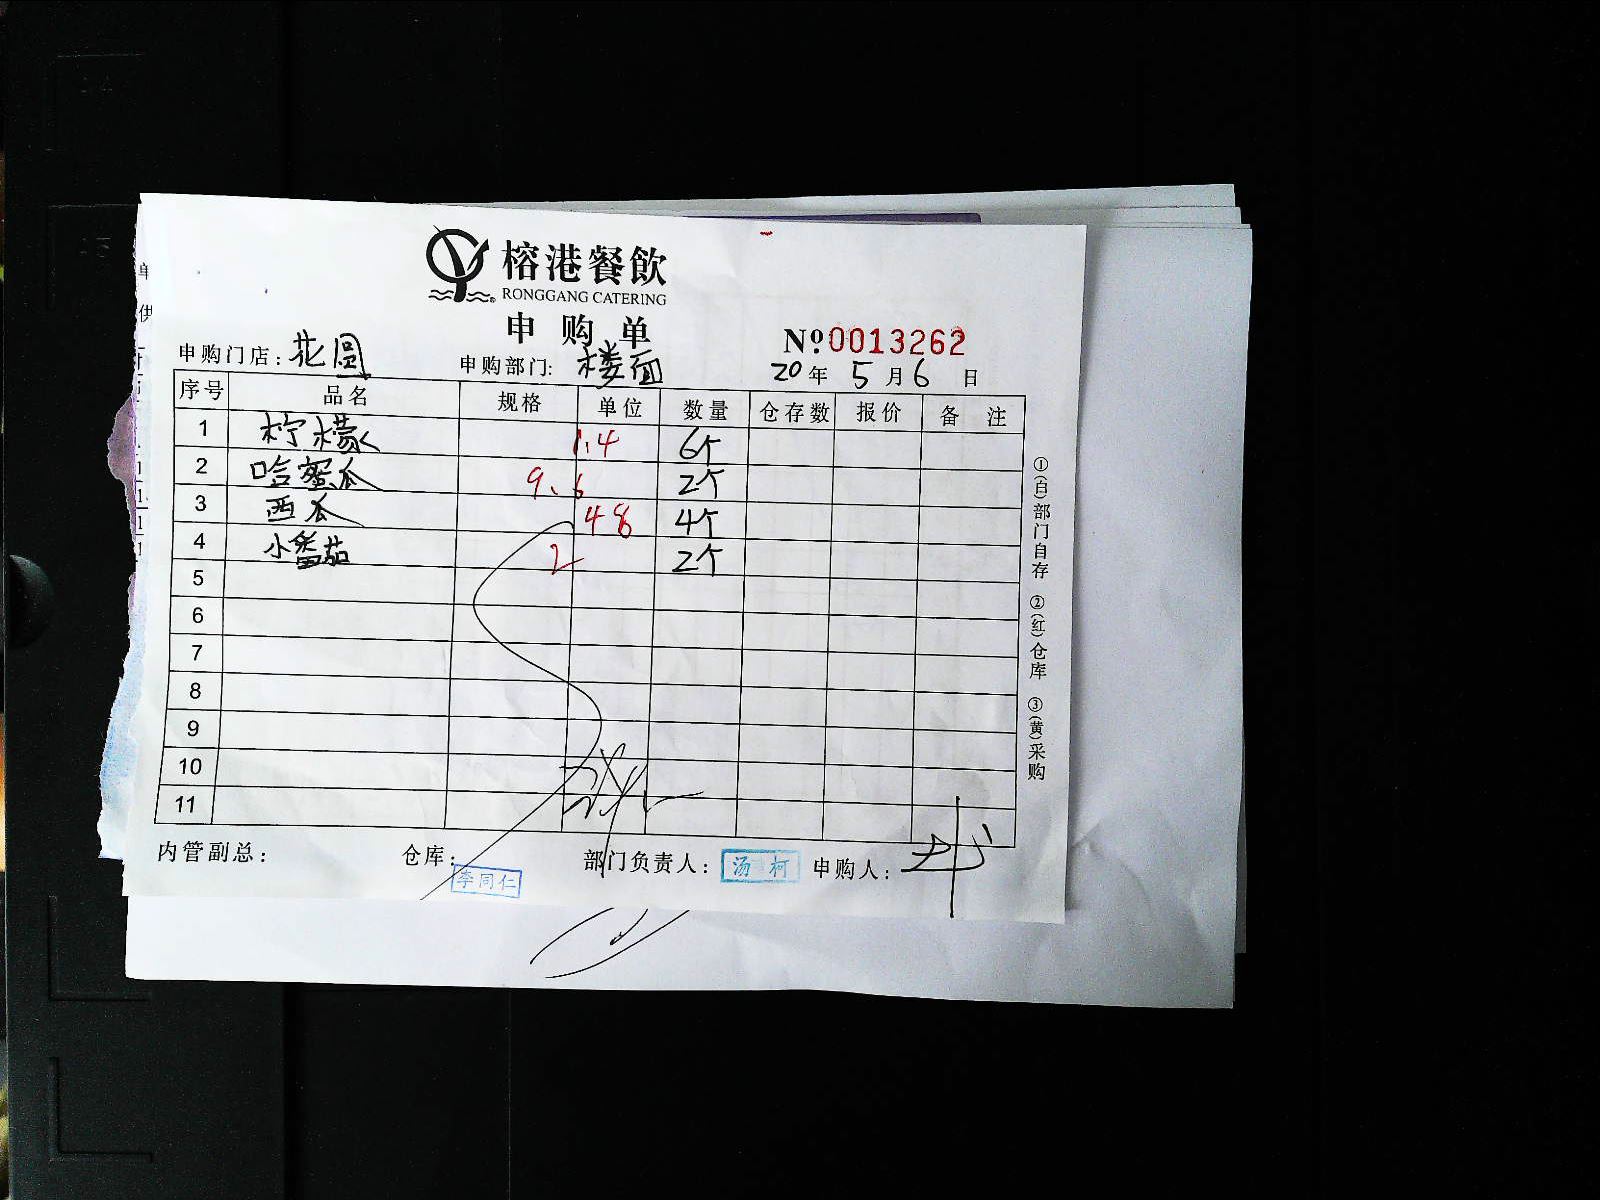 榕港餐飲
RONGGANG CATERING
申购单
№0013262
申购门店:花园 申购部门:楼面 20年5月6日
序号 品名 规格 单位 数量 仓存数 报价 备注
1 柠檬 1.4 6个
2 哈蜜瓜 9.6 2个
3 西瓜 48 4个
4 小番茄 2 2个
5
6
7
8
9
10
11
①(白)部门自存 ②(红)仓库 ③(黄)采购
内管副总: 仓库: 李同仁 部门负责人: 汤柯 申购人:
单
供